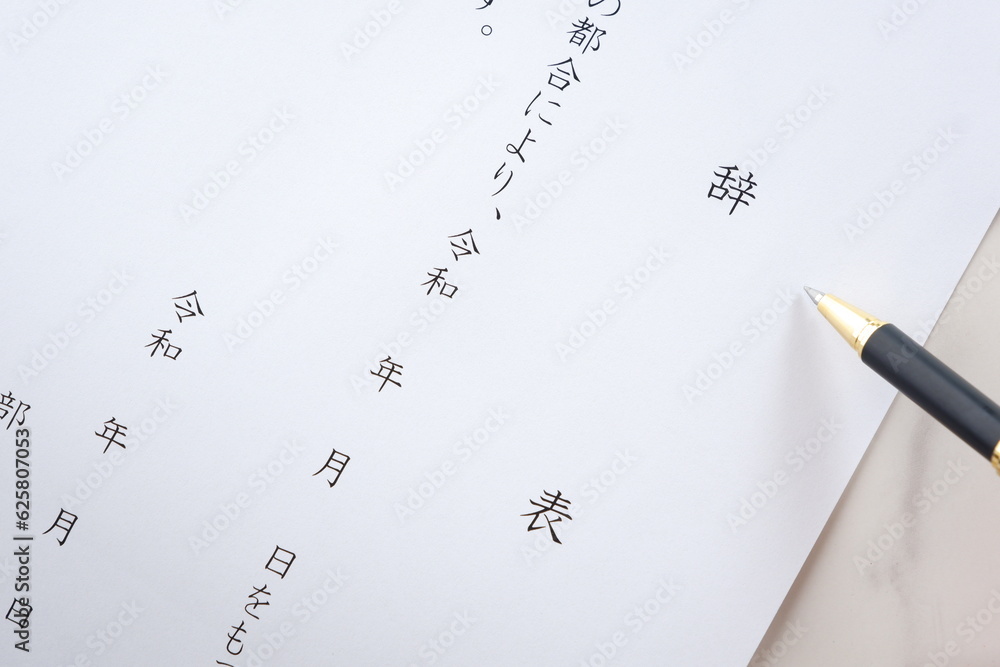 辞表
の都合により、令和 年 月 日をも
す。
令和 年 月 日
部
Adobe Stock | #625807053